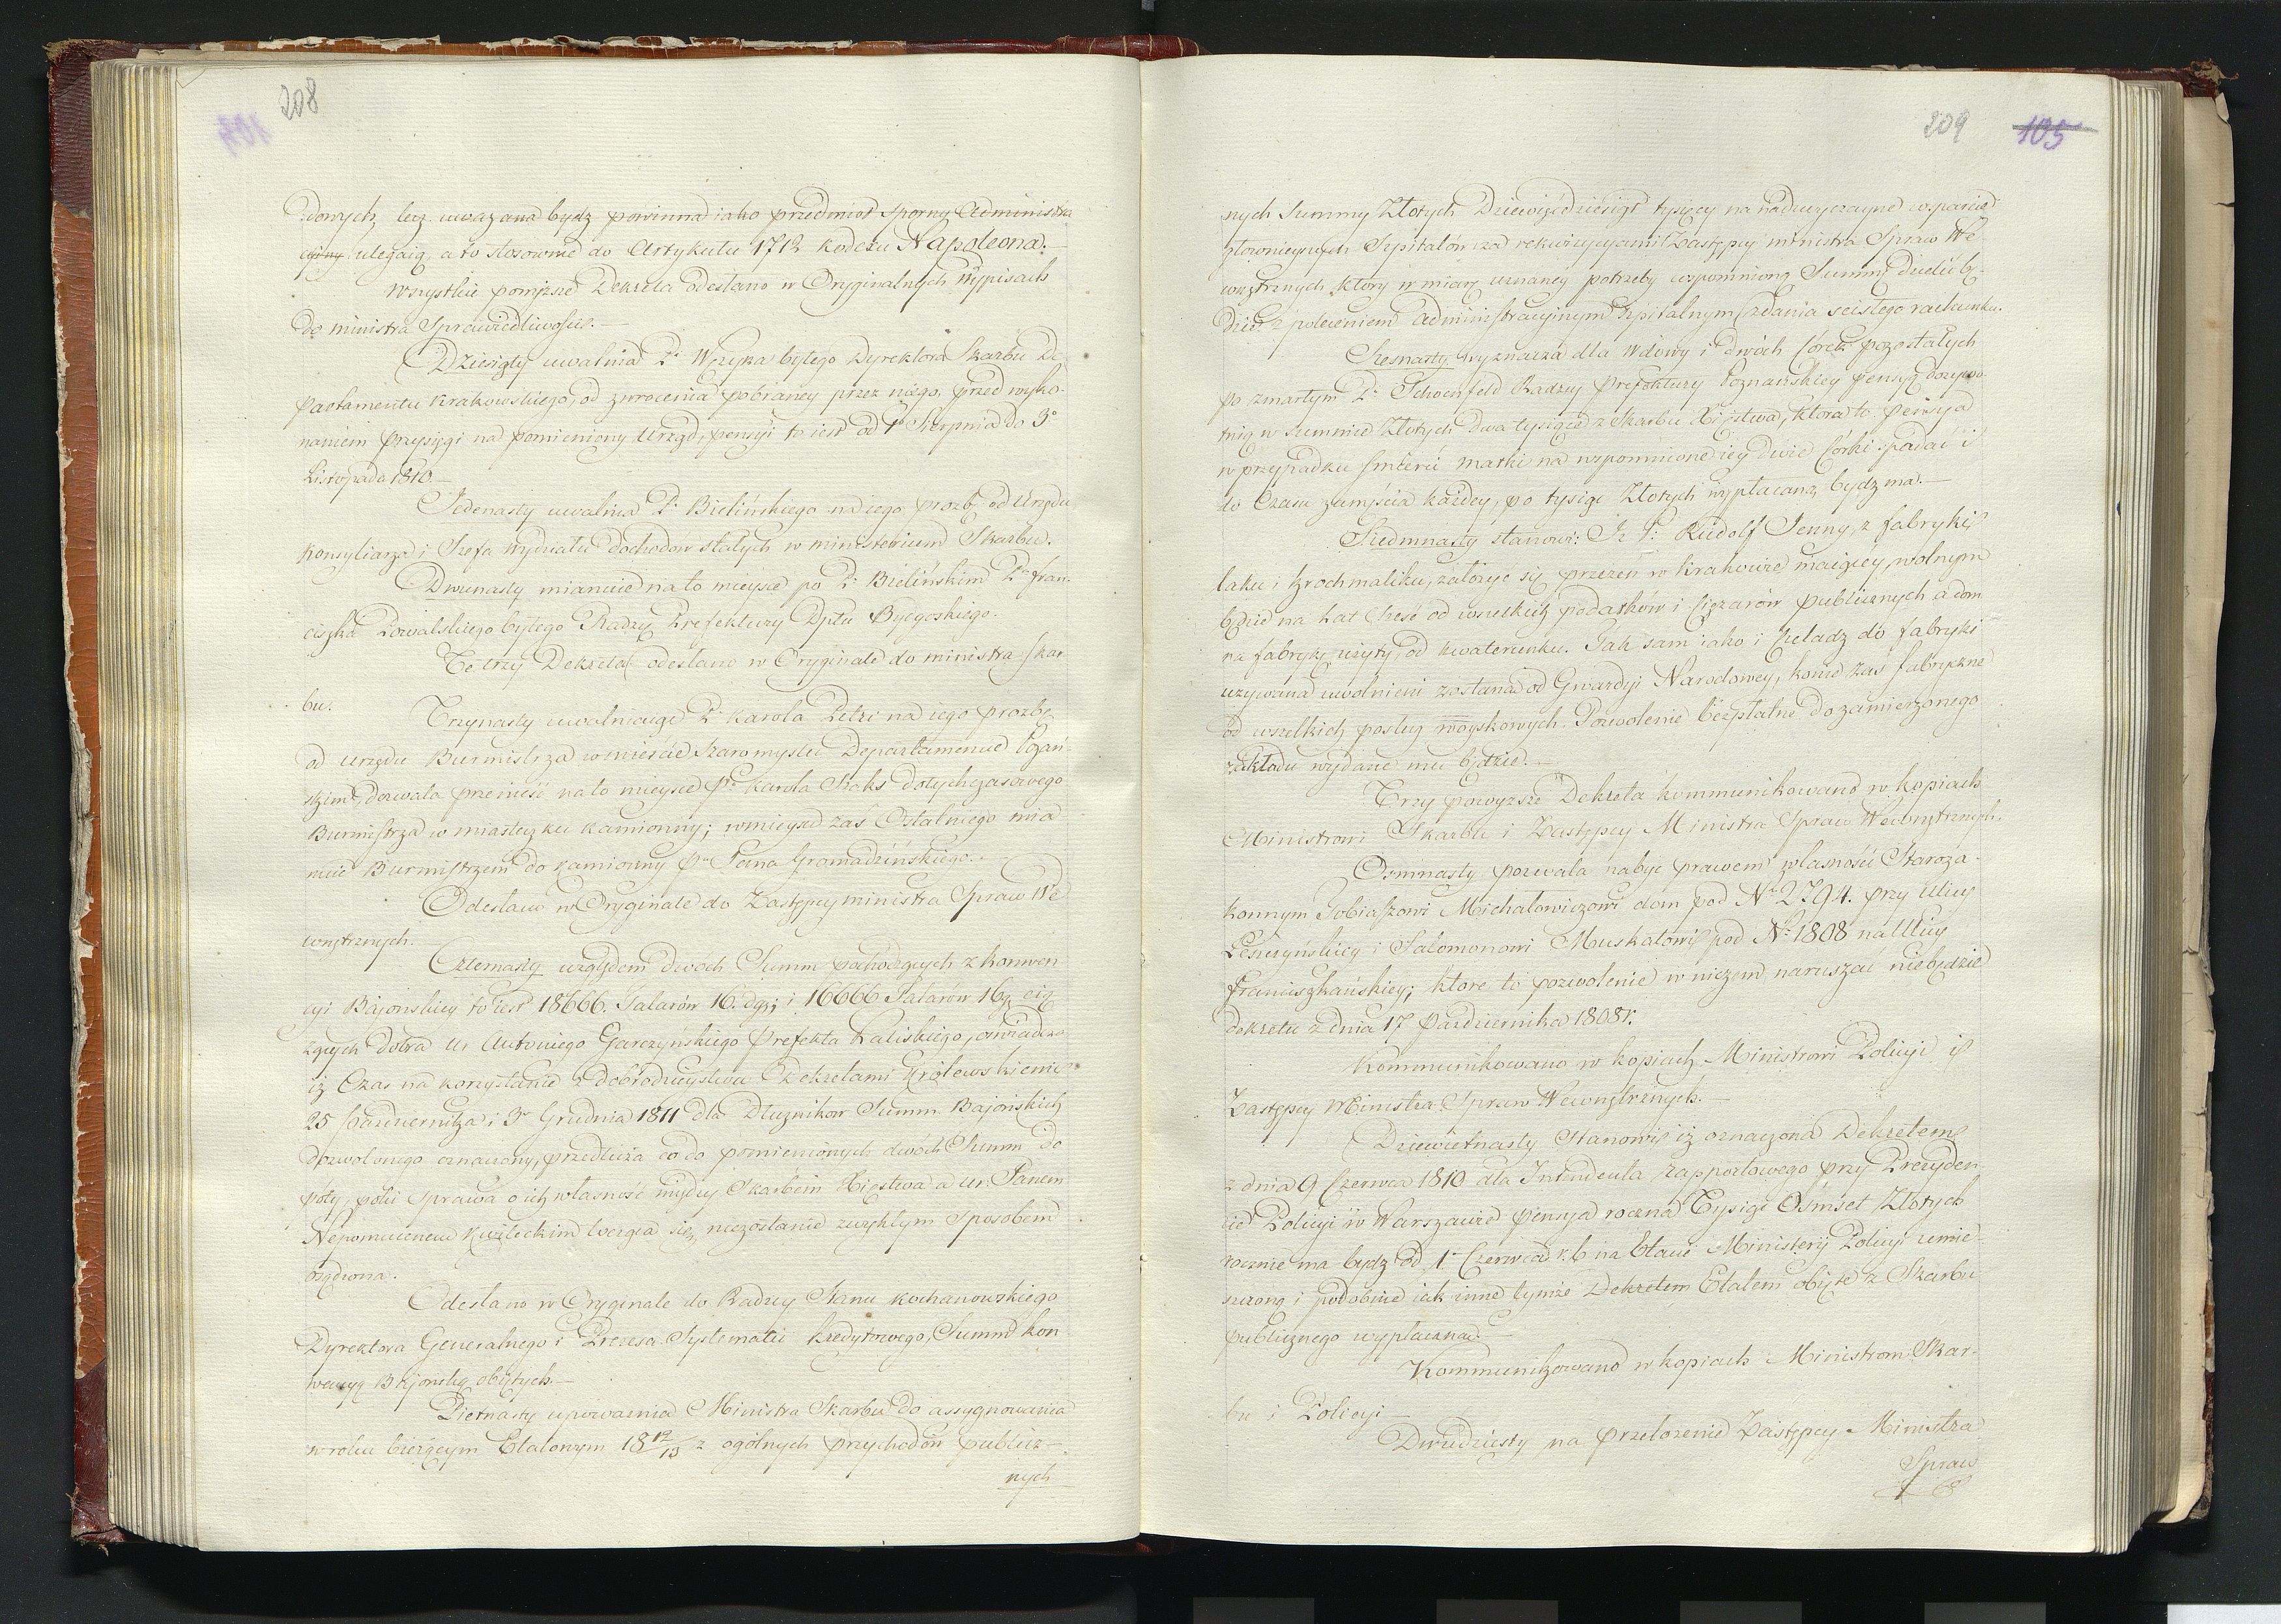 208
dowych, lecz uważana bydź powinna iako przedmiot sporny Administra
cyiny ulegaią, a to stosownie do Artykułu 1712 kodexu Napoleona.—
Wszystkie pomięsze Dekreta odesłano w Oryginalnych wypisach
do ministra Sprawiedliwości.—
Dziesiąty uwalnia Pa Wężyka byłego Dyrektora Skarbu De
partamentu Krakowskiego, od zwrocenia pobraney przez niego, przed wyko-
naniem przysięgi na pomieniony Urząd, pensyi to iest od 1o Sierpnia do 3o
Listopada 1810.—
Jedenasty uwalnia Pa Bielińskiego na iego prozbę od Urzędu
Konsyliarza i Szefa Wydziału dochodów stałych w ministerium Skarbu.
Dwunasty mianuie na to mieysce po Pu Bielińskim Pa Fran-
ciszka Powalskiego byłego Radzcę Prefektury Dptu Bydgoskiego.
Te trzy Dekreta odesłano w Oryginale do ministra Skar
bu.
Trzynasty uwalniaiąc Pa Karola Petri na iego prozbę
od urzędu Burmistrza w mieście Szaromyślu Departamencie Pozań-
skim, dozwala przenieść na to mieysce Pa Karola Saks dotychczasowego
Burmistrza w miasteczku Kamionny; w mieysce zaś Ostatniego mia-
nuie Burmistrzem do Kamionny Pa Jana Gromadzińskiego.
Odesłano w Oryginale do Zastępcy ministra Spraw We
wnętrznych.
Czternasty względem dwoch Summ pochodzących z konwen
cyi Bajońskiey to iest 18666. Talarów 16. dgr; i 16666 Talarów 16g cią
żących dobra Ur Antoniego Garczyńskiego Prefekta Kaliskiego, oswiadcza
iż Czas na korzystanie z dobrodzieystwa Dekretami Królewskiemi
25 Października i 3o Grudnia 1811 dla Dłużnikow Summ Bajońskich
dozwolonego oznaczony, przedłuża co do pomienionych dwóch Summ do
póty, poki Sprawa o ich własność między Skarbem Xięstwa a ur: Janem
Nepomucenem Kwileckim tocząca się, niezostanie zwykłym sposobem
osądzona.
Odesłano w Oryginale do Radzcy Stanu Kochanowskiego
Dyrektora Generalnego i Prezesa Systematu kredytowego, Summ kon
wencyą Bajońską obiętych.—
Pietnasty upoważnia Ministra Skarbu do assygnowania
w roku bieżącym Etatowym 18 12/13 z ogólnych przychodów publicz-
nych
209 105
nych Summy Złotych Dziewięćdziesiąt tysięcy na nadzwyczayne wsparcie
głownieyszych Szpitalów za rekwizycyami Zastępcy ministra Spraw We-
wnętrznych, który w miarę uznaney potrzeby wspomnioną Summę dzielić bę-
dzie z poleceniem Administracyinym Szpitalnym zdania scisłego rachunku.
Szesnasty wyznacza dla Wdowy i dwóch Córek pozostałych
po zmarłym Pu Schoenfeld Radzcy Prefektury Poznańskiey pensyą dożywo-
tnią w Summie Złotych dwa tysiące z Skarbu Xięstwa, ktora to pensya
w przypadku smierci matki na wspomnione iey dwie Córki spadać i
do Czasu zamęścia każdey, po tysiąc Złotych wypłacaną bydź ma.—
Siedmnasty stanowi: Iż P: Rudolf Jenny, z fabryki
laku i krochmaliku, założyć się przezeń w Krakowie maiącey, wolnym
będzie na Lat Sześć od wszelkich podatków i Ciężarów publicznych a dom
na fabrykę użyty, od kwaterunku. Tak sam iako i czeladź do fabryki
używana uwolnieni zostaną od Gwardyi Narodowey, konie zaś fabryczne
od wszelkich posług woyskowych. Pozwolenie bezpłatne do zamierzonego
zakładu wydane mu będzie.—
Trzy powyższe Dekreta kommunikowano w kopiach
Ministrowi Skarbu i Zastępcy Ministra Spraw Wewnętrznych.
Osmnasty pozwala nabyć prawem własności Staroza-
konnym Tobiaszowi Michałowiczowi dom pod No 2794. przy Ulicy
Leszczyńskiey i Salomonowi Muskatowi pod No 1808 na Ulicy
Franciszkańskiey; ktore to pozwolenie w niczem naruszać niebędzie
dekretu z dnia 17 Października 1808r.
Kommunikowano w kopiach Ministrowi Policyi i
Zastępcy Ministra Spraw Wewnętrznych.—
Dziewietnasty Stanowi iż oznaczona Dekretem
z dnia 9 Czerwca 1810 dla Intendenta rapportowego przy Prezyden
cie Policyi w Warszawie pensya roczna Tysiąc Osmset Złotych
rocznie ma bydź od 1o Czerwca r.b na Etacie Ministeryi Policyi umie-
szczoną i podobnie iak inne tymże Dekretem Etatem obięte z Skarbu
publicznego wypłacaną.—
Kommunikowano w kopiach Ministrom Skar-
bu i Policyi
Dwudziesty na przełożenie Zastępcy Ministra
Spraw